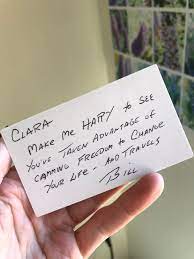 CLARA
MAKE ME HAPPY TO SEE
YOU'VE TAKEN ADVANTAGE OF
CAMMING FREEDOM TO CHANGE
YOUR LIFE - AND TRAVELS
BILL